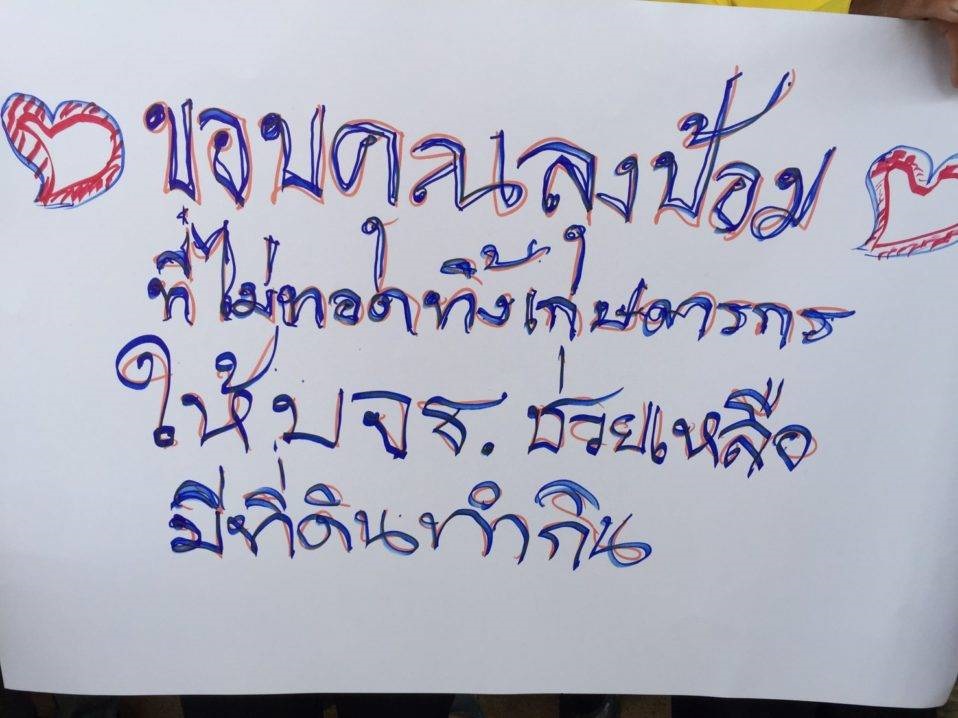 ขอบคณลงป้อม
ที่ไม่ทอดทิ้งเกษตารกร
ให้ บจธ. ช่วยเหลือ
มีที่ดินทำกิน